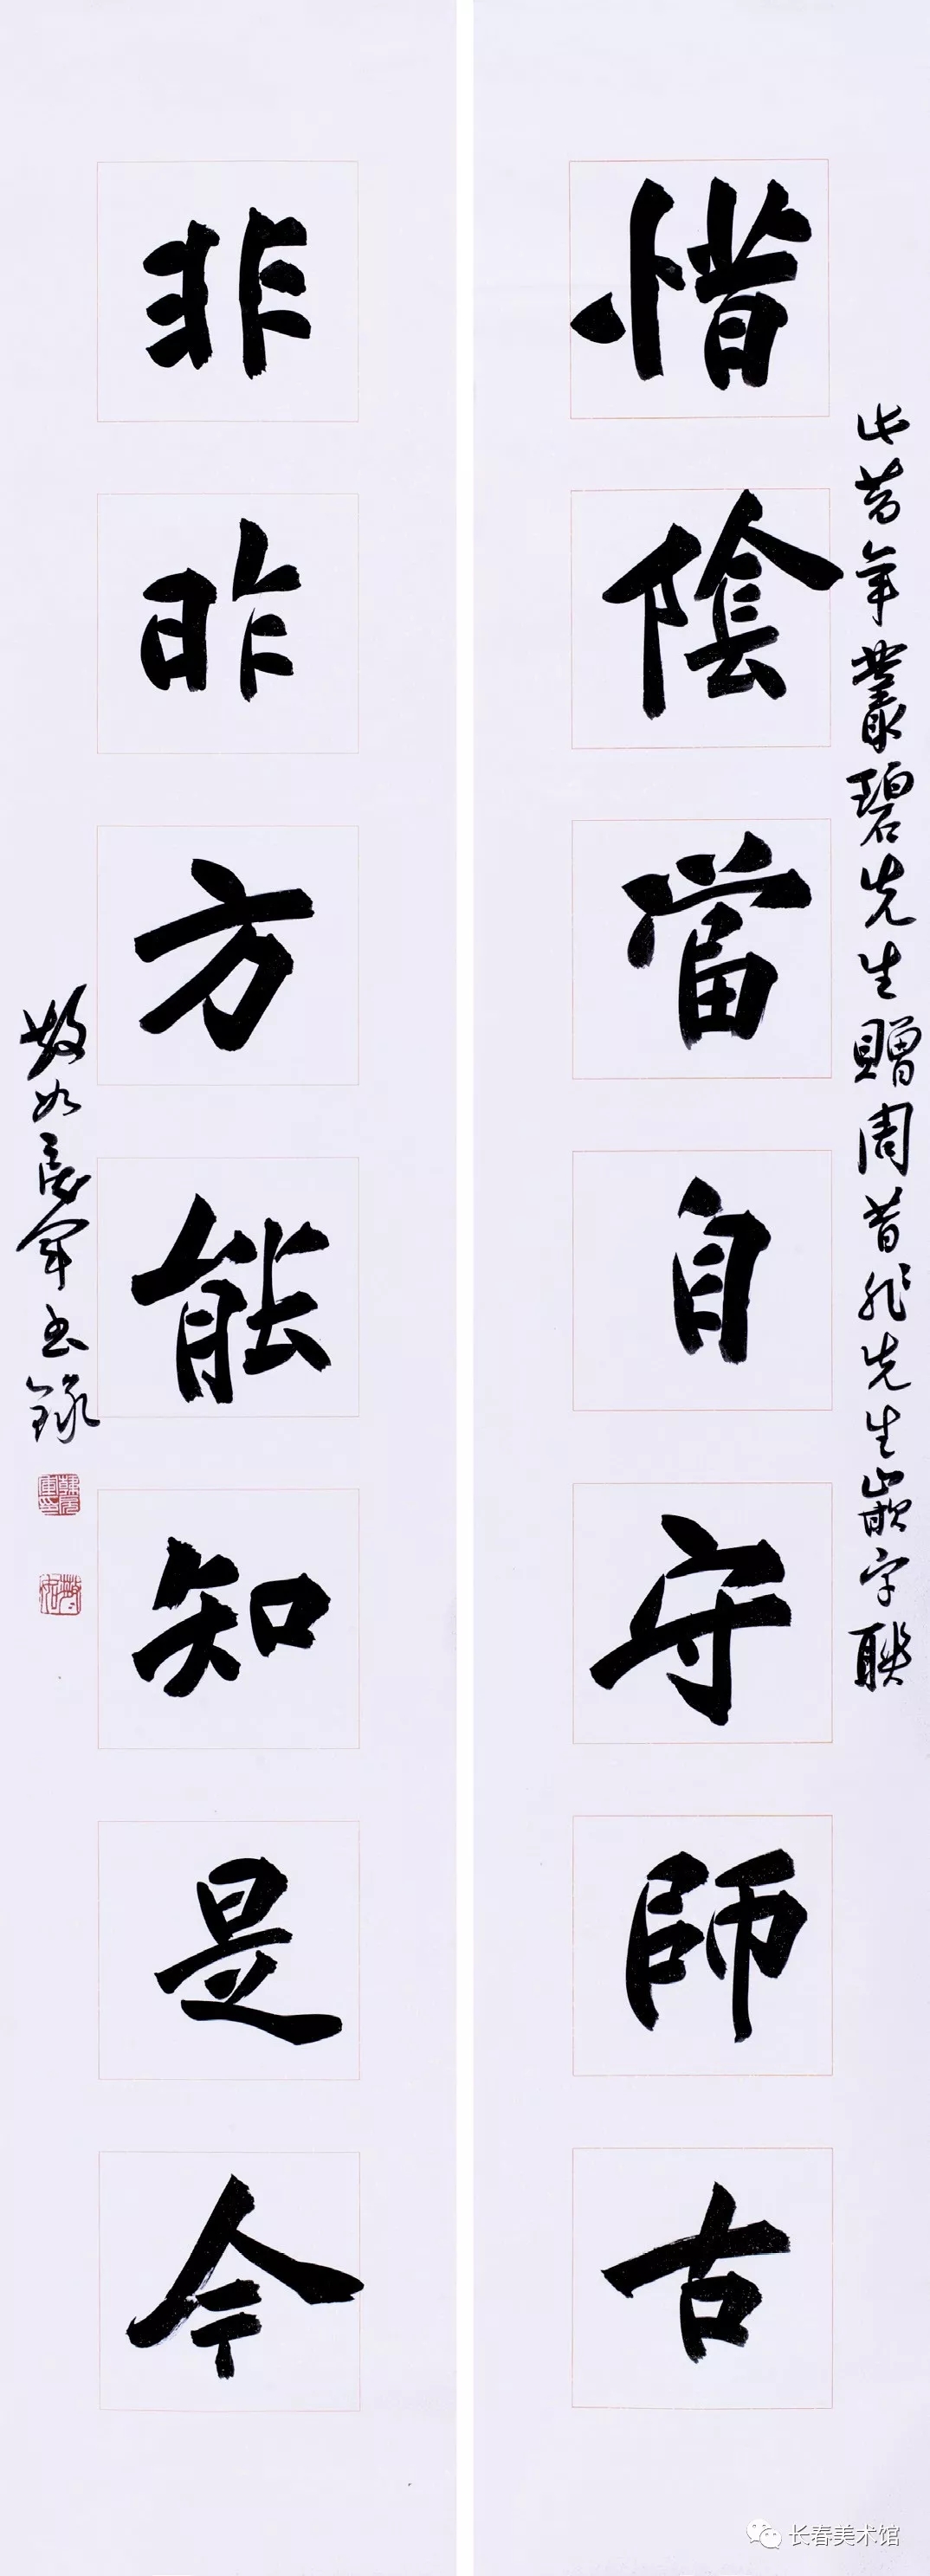 惜陰當自守師古
此昔年叢碧先生贈周昔非先生嵌字聯
非昨方能知是今
展軍書錄
长春美术馆